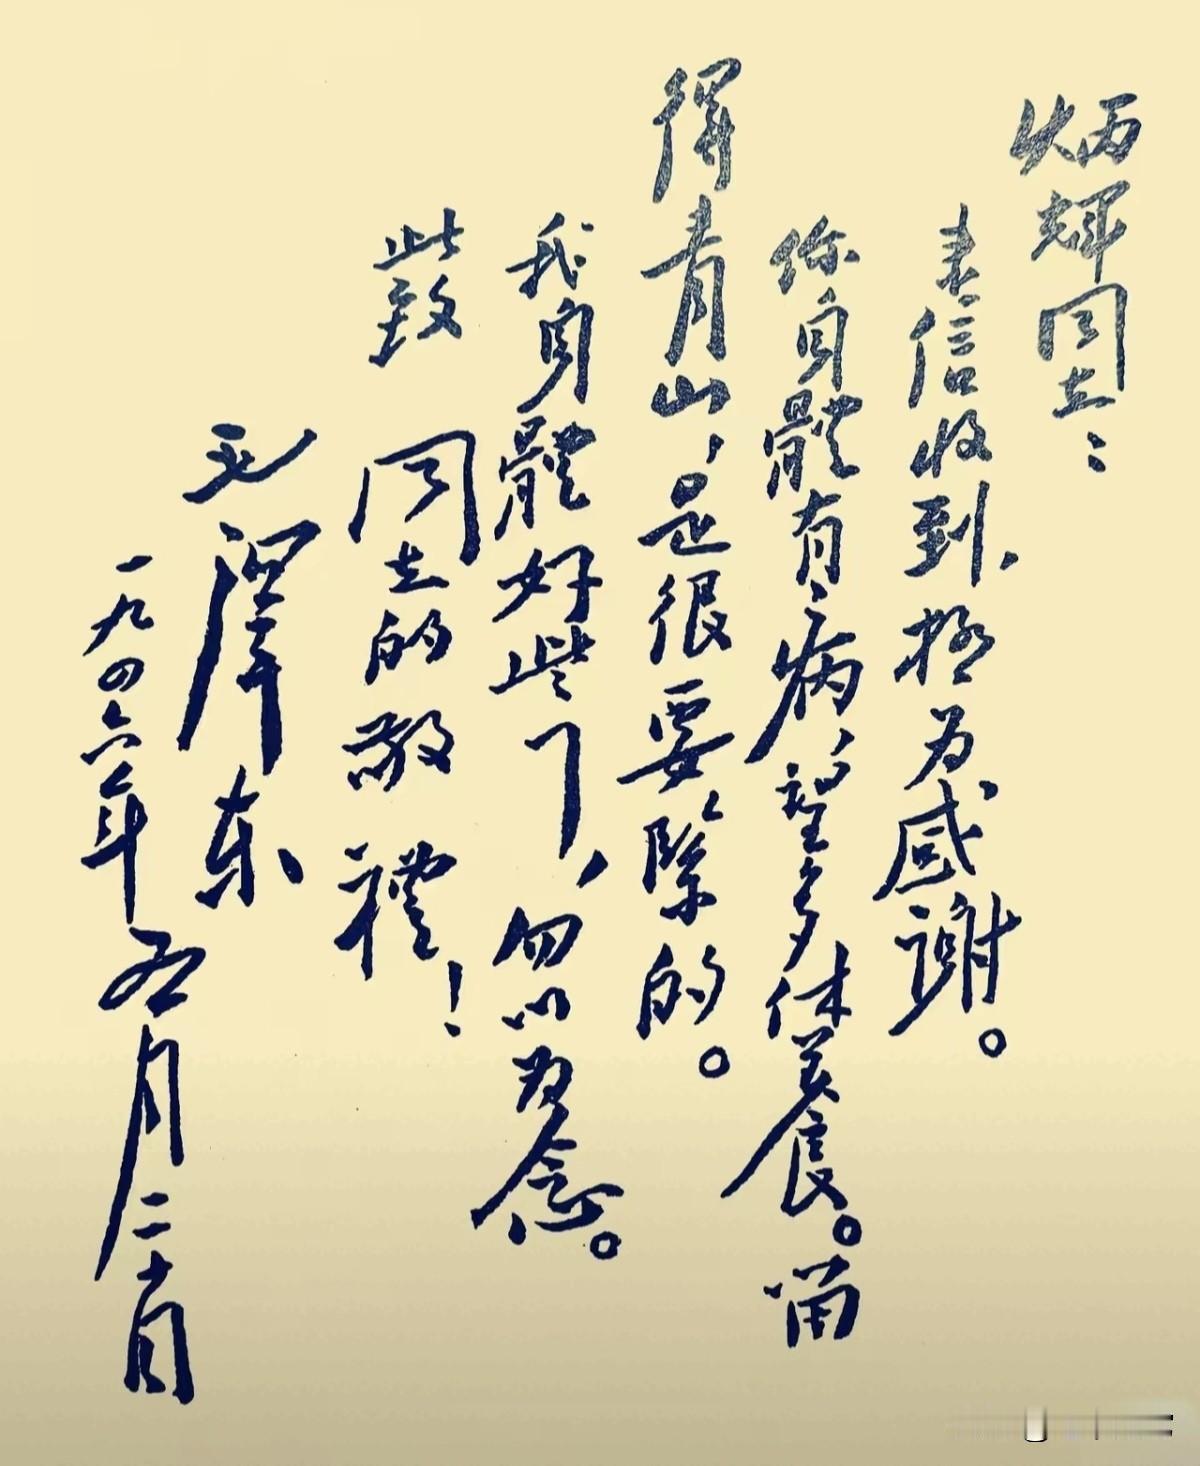 炳輝同志：
来信收到，极为感謝。
你身體有病，望多休養。留
得青山，是很要緊的。
我身體好些了，勿以为念。
此致
同志的敬禮！
毛澤东
一九四六年五月二十日